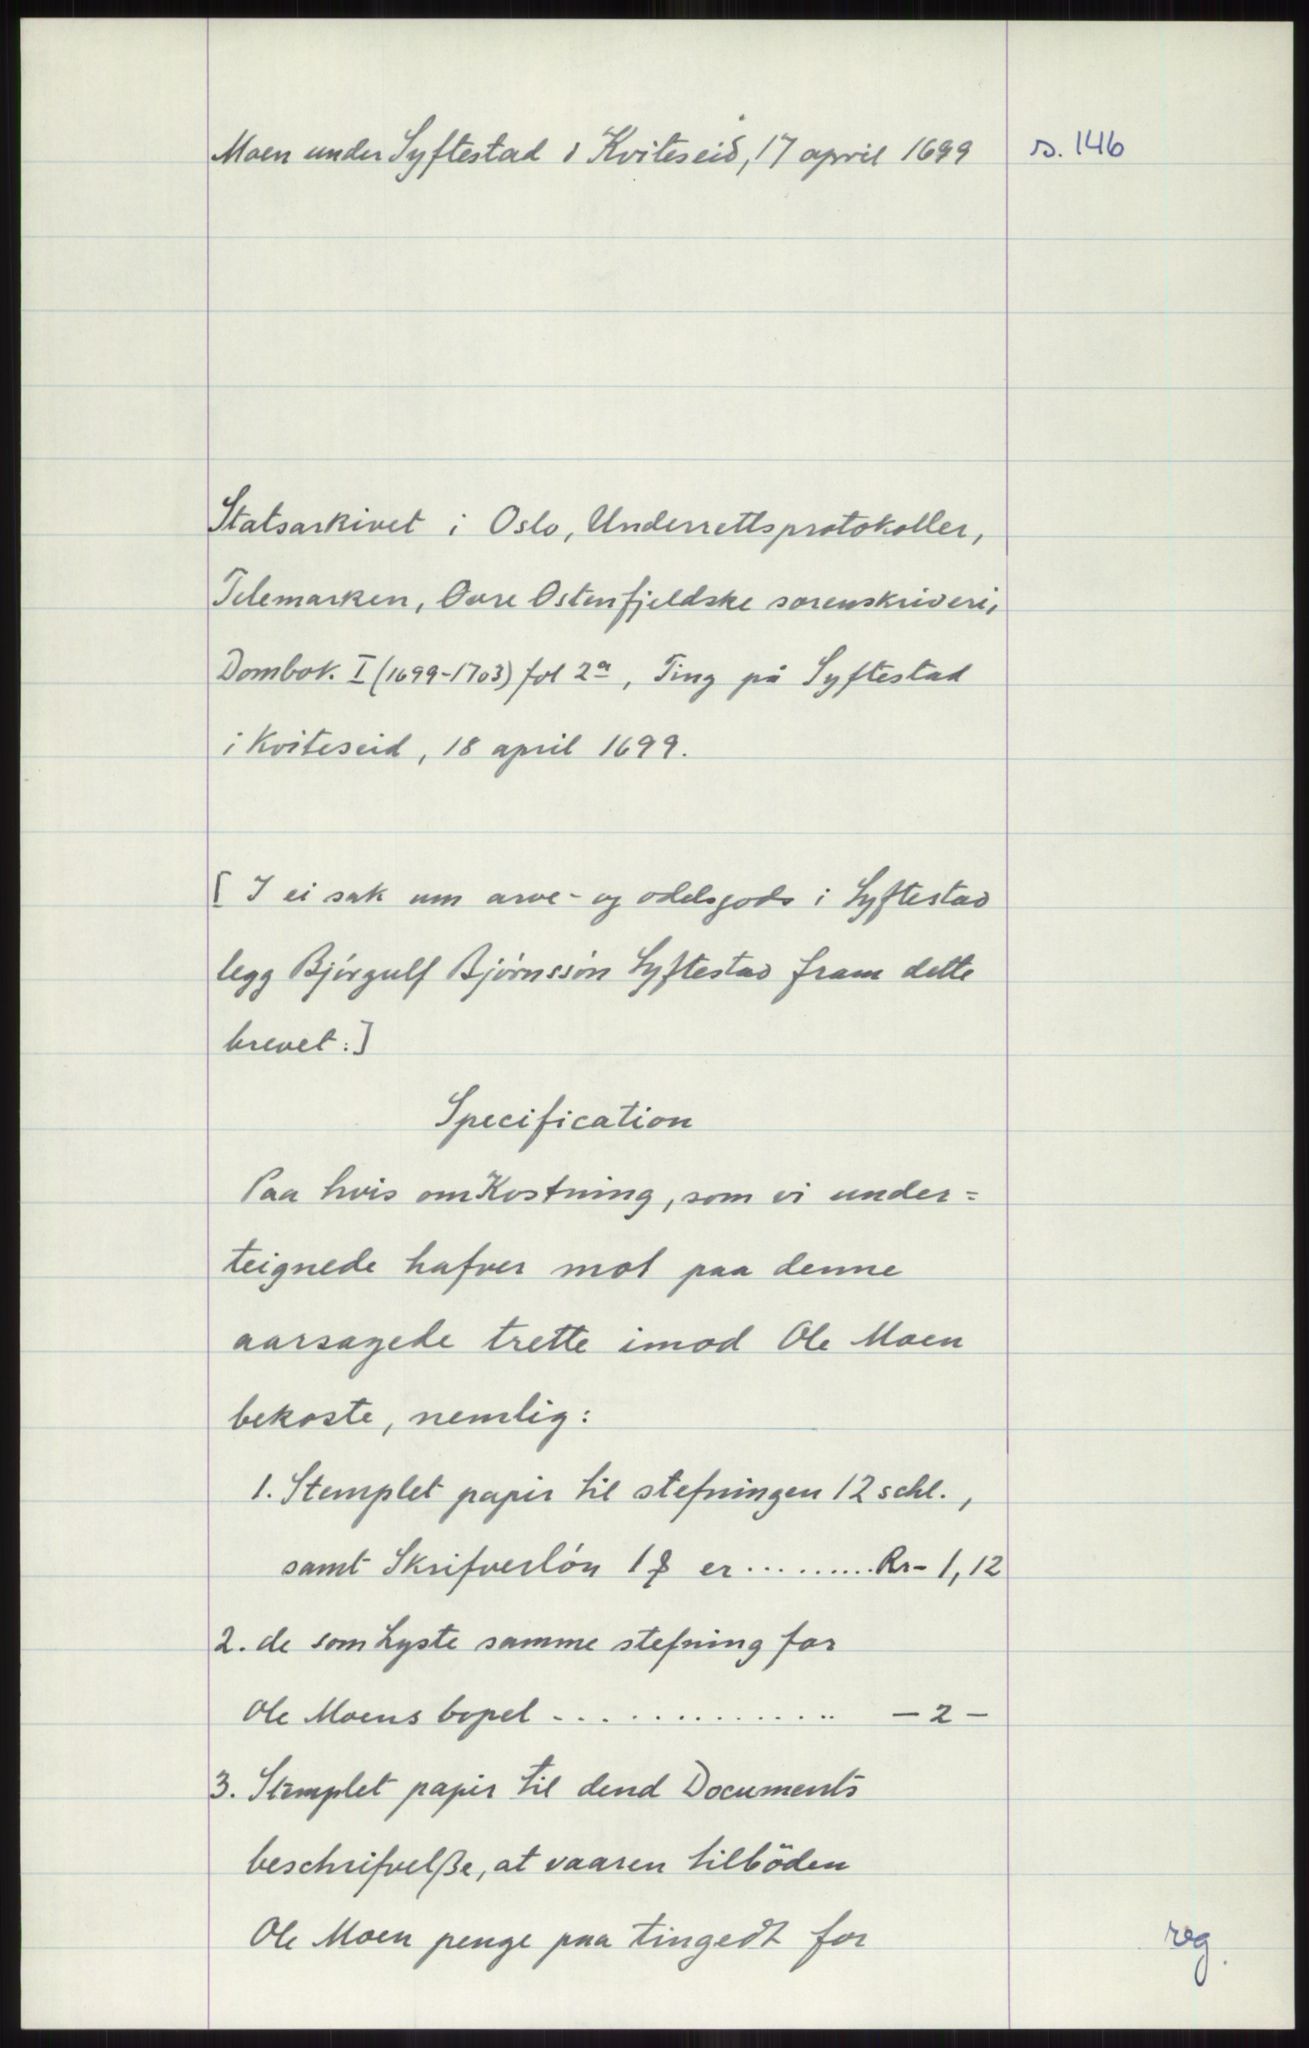 Moen under Syftestad i Kviteseid, 17 april 1699
s. 146
Statsarkivet i Oslo, Underrettsprotokoller,
Telemarken, Øvre Østenfjeldske sorenskriveri,
Dombok. I (1699-1703) fol 2a, Ting på Syftestad
i Kviteseid, 18 april 1699.
[ I ei sak um arve- og odelsgods i Syftestad
legg Bjørgulf Bjørnssøn Syftestad fram dette
brevet:]
Specification
Paa hvis omKostning, som vi under=
teignede hafver mot paa denne
aarsagede trette imod Ole Moen
bekoste, nemlig:
1. Stemplet papir til stefningen 12 schl.,
samt Skrifverløn 1 ort er .......... Rr- 1, 12
2. de som Lyste samme stefning for
Ole Moens bopel - . . . . . . . . . . . . . — 2 —
3. Stemplet papir til dend Documents
beschrifvelße, at vaaren tilböden
Ole Moen penge paa tingedt for
reg.